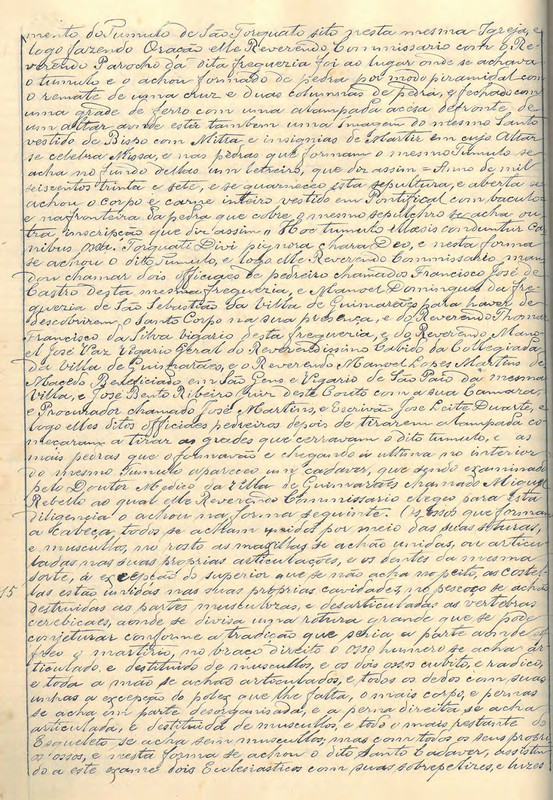 mento do Tumulo de São Torquato sito nesta mesma Igreja, e
logo fazendo Oração elle Reverendo Commissario com o Re-
verendo Parocho da dita freguezia foi ao lugar onde se achava
o tumulo e o achou formado de pedra por modo piramidal com
o remate de uma cruz e duas columnas de pedra, e fechado com
uma grade de ferro com uma alampada acesa defronte de
um altar aonde está tambem uma Imagem do mesmo Santo
vestido de Bispo com Mitra e insignias de Martir em cujo Altar
se celebra Missa, e nas pedras que formam o mesmo Tumulo se
acha no fundo dellas um letreiro, que diz assim = Anno de mil
seiscentos trinta e sete, e se guarneceo esta sepultura, e aberta se
achou o corpo e carne inteiro vestido em Pontifical com baculo
e na fronteira da pedra que cobre o mesmo sepulchro se acha ou-
tra inscripção que diz assim "Hoc tumulo illæsis conduntur car
nibus, ossa. Torquati Divi pignora chara Deo, e nesta forma
se achou o dito Tumulo, e logo elle Reverendo Commissario man-
dou chamar dois officiaes de pedreiro chamados Francisco José de
Castro desta mesma freguezia, e Manoel Domingues da fre-
guezia de São Sebastião da Villa de Guimarães para haver de
descobrirem o Santo Corpo na sua presença, e do Reverendo Thomaz
Francisco da Silva vigario desta freguezia, e do Reverendo Mano-
el José Vaz Vigario Geral do Reverendissimo Cabido da Collegiada
da Villa de Guimarães, e o Reverendo Manoel Lopes Martins de
Macedo Beneficiado em São Gens e Vigario de São Paio da mesma
Villa, e José Bento Ribeiro Juiz deste Couto com a sua Camara,
e Procurador chamado José Martins, e Escrivão José Leite Duarte, e
logo elles ditos officiaes pedreiros depois de tirarem a lampada co-
meçaram a tirar as grades que cerravam o dito tumulo, e as
mais pedras que o formavão e chegando á ultima no interior
do mesmo Tumulo apareceo um cadaver, que sendo examinado
pelo Doutor Medico da Villa de Guimarães chamado Miguel
Rebello ao qual elle Reverendo Commissario elegeo para esta
diligencia o achou na forma seguinte. Os ossos que formam
a cabeça, todos se acham unidos por meio das suas suturas,
e musculos, no rosto as maxillas se achão unidas, ou articu-
ladas nas suas proprias articulações, e os dentes da mesma
sorte, á excepção do superior que se não acha no peito, as costel-
las estão unidas nas suas proprias cavidades, no pescoço se achão
destruidas as partes musculozas, e desarticuladas as vertebras
cerebicaes, aonde se divisa uma rotura grande que se pode
conjeturar conforme a tradição que seria a parte aonde so-
freo o martirio, no braço direito o osso humero se acha ar-
ticulado, e destituido de musculos, e os dois ossos cubito, e radico,
e toda a mão se achão articulados, e todos os dedos com suas
unhas a excepção do polex que lhe falta, o mais corpo, e pernas
se acha em parte desorganisada, e a perna direita se acha
articulada, e destituida de musculos, e todo o mais restante do
Esqueleto se acha sem musculos, mas com todos os seus propri
os ossos, e nesta forma se achou o dito Santo Cadaver, assistin-
do a este exame dois Ecclesiasticos com suas sobrepelizes, e luzes
15